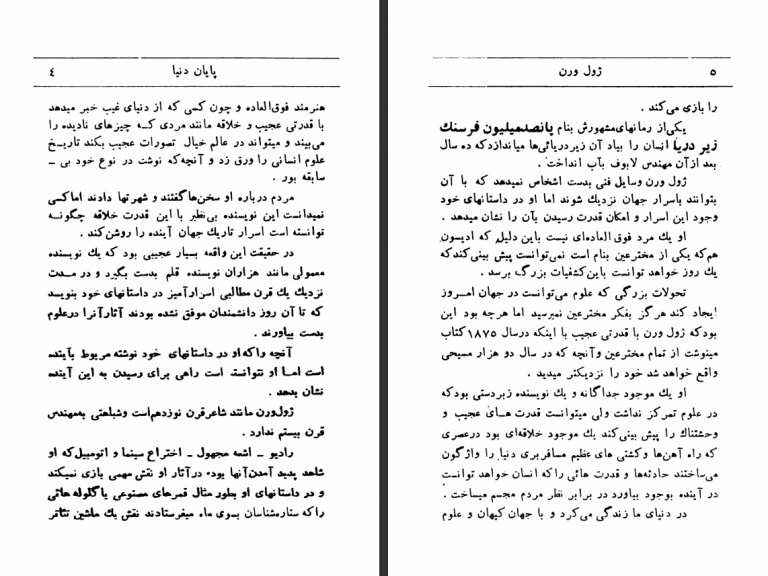 پایان دنیا
٤
هنرمند فوق‌العاده و چون کسی که از دنیای غیب خبر میدهد
با قدرتی عجیب و خلاقه مانند مردی کـه چیزهای نادیده را
می‌بیند و میتواند در عالم خیال تصورات عجیب بکند تاریـخ
علوم انسانی را ورق زد و آنچه‌که نوشت در نوع خود بی ـ
سابقه بود .
مردم درباره او سخن‌ها گفتند و شهرتها دادند اما کسی
نمیدانست این نویسنده بی‌نظیر با این قدرت خلاقه چگونـه
توانسته است اسرار تاریك جهان آینده را روشن‌کند .
در حقیقت این واقعه بسیار عجیبی بود که یك نویسنده
معمولی مانند هزاران نویسنده قلم بدست بگیرد و در مـدت
نزدیك یك قرن مطالبی اسرارآمیز در داستانهای خود بنویسد
که تا آن روز دانشمندان موفق نشده بودند آثار آنرا درعلوم
بدست بیاورند .
آنچه را که او در داستانهای خود نوشته مربوط بآینده
است امـا او نتوانسته است راهی برای رسیدن به این آینده
نشان بدهد .
ژول‌ورن مانند شاعر قرن نوزدهم‌است وشباهتی به‌مهندس
قرن بیستم ندارد .
رادیو ـ اشعه مجهول ـ اختراع سینما و اتومبیل‌که او
شاهد پدید آمدن‌آنها بود، درآثار او نقش مهمی بازی نمیکند
و در داستانهای او بطور مثال قمرهای مصنوعی یا گلوله هائی
را که ستاره‌شناسان بسوی ماه میفرستادند نقش یك ماشین تئاتر
ژول ورن
٥
را بازی می‌کند .
یکی‌از رمانهای‌مشهورش بنام پانصدمیلیون فرسنك
زیر دریا انسان را بیاد آن زیردریائی‌ها میاندازدکه ده سال
بعد ازآن مهندس لابوف بآب انداخت .
ژول ورن وسایل فنی بدست اشخاص نمیدهد که با آن
بتوانند باسرار جهان نزدیك شوند اما او در داستانهای خود
وجود این اسرار و امکان قدرت رسیدن بآن را نشان میدهد .
او یك مرد فوق العاده‌ای نیست باین دلیل که ادیسون
هم‌که یکی از مخترعین بنام است نمی‌توانست پیش بینی‌کندکه
یك روز خواهد توانست باین‌کشفیات بزرگ برسد .
تحولات بزرگی که علوم می‌توانست در جهان امـروز
ایجاد کند هرگز بفکر مخترعین نمیرسید اما هرچه بود این
بودکه ژول ورن با قدرتی عجیب با اینکه درسال ۱۸۷۵ کتاب
مینوشت از تمام مخترعین وآنچه که در سال دو هزار مسیحی
واقع خواهد شد خود را نزدیکتر میدید .
او یك موجود جداگانه و یك نویسنده زبردستی بودکه
در علوم تمرکز نداشت ولی میتوانست قدرت هـای عجیب و
وحشتناك را پیش بینی‌کند یك موجود خلاقه‌ای بود درعصری
که راه آهن‌ها وکشتی های عظیم مسافربری دنیـا را واژگون
می‌ساختند حادثه‌ها و قدرت هائی را که انسان خواهد توانست
در آینده بوجود بیاورد در برابر نظر مردم مجسم میساخت .
در دنیای ما زندگی می‌کرد و با جهان کیهان و علوم